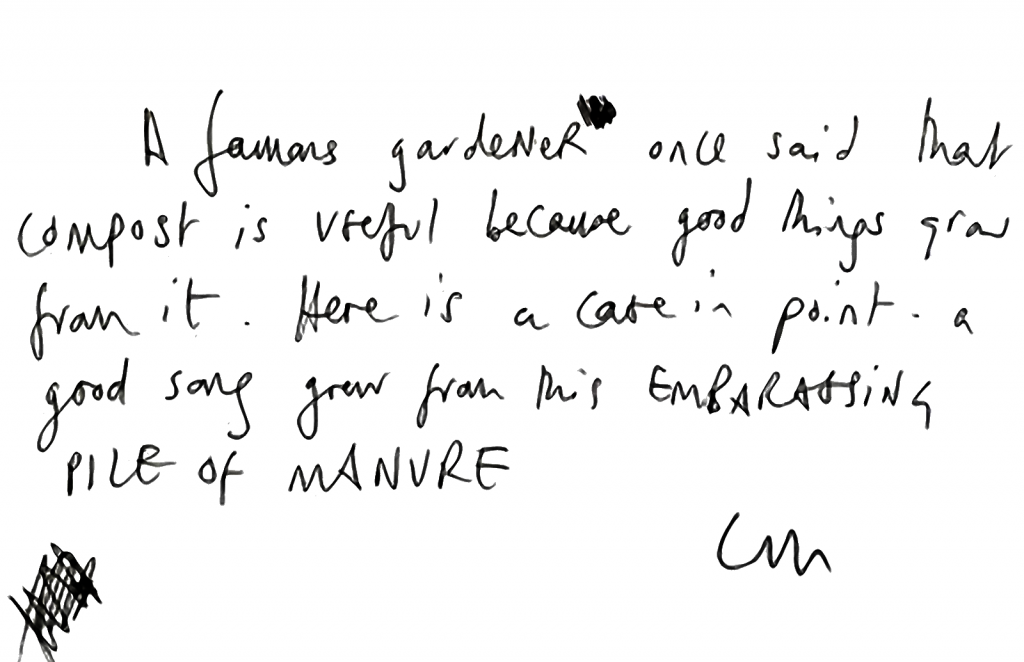 A famous gardener once said that
compost is useful because good things grow
from it. Here is a case in point. a
good song grew from this EMBARASSING
PILE OF MANURE